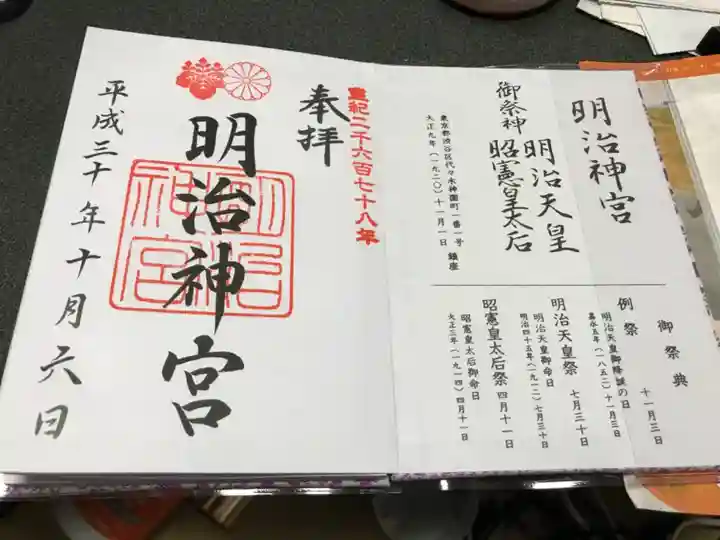 明治神宮
御祭神
明治天皇
昭憲皇太后
東京都渋谷区代々木神園町一番一号
大正九年(一九二〇)十一月一日 鎮座
御祭典
例祭 十一月三日
明治天皇御降誕の日
嘉永五年(一八五二)十一月三日
明治天皇祭 七月三十日
明治天皇御命日
明治四十五年(一九一二)七月三十日
昭憲皇太后祭 四月十一日
昭憲皇太后御命日
大正三年(一九一四)四月十一日
皇紀二千六百七十八年
奉拝
明治神宮
明治神宮
平成三十年十月六日